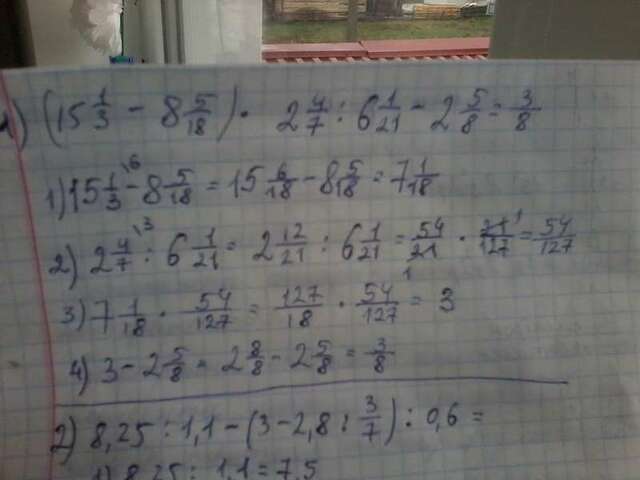 1) (15 1/3 - 8 5/18) · 2 4/7 : 6 1/21 - 2 5/8 = 3/8
1) 15 1/3 \6 - 8 5/18 = 15 6/18 - 8 5/18 = 7 1/18
2) 2 4/7 \3 : 6 1/21 = 2 12/21 : 6 1/21 = 54/21 1 · 21/127 1 = 54/127
3) 7 1/18 · 54/127 = 127/18 · 54/127 = 3
4) 3 - 2 5/8 = 2 8/8 - 2 5/8 = 3/8
2) 8,25 : 1,1 - (3 - 2,8 : 3/7) : 0,6 =
1) 8,25 : 1,1 = 7,5